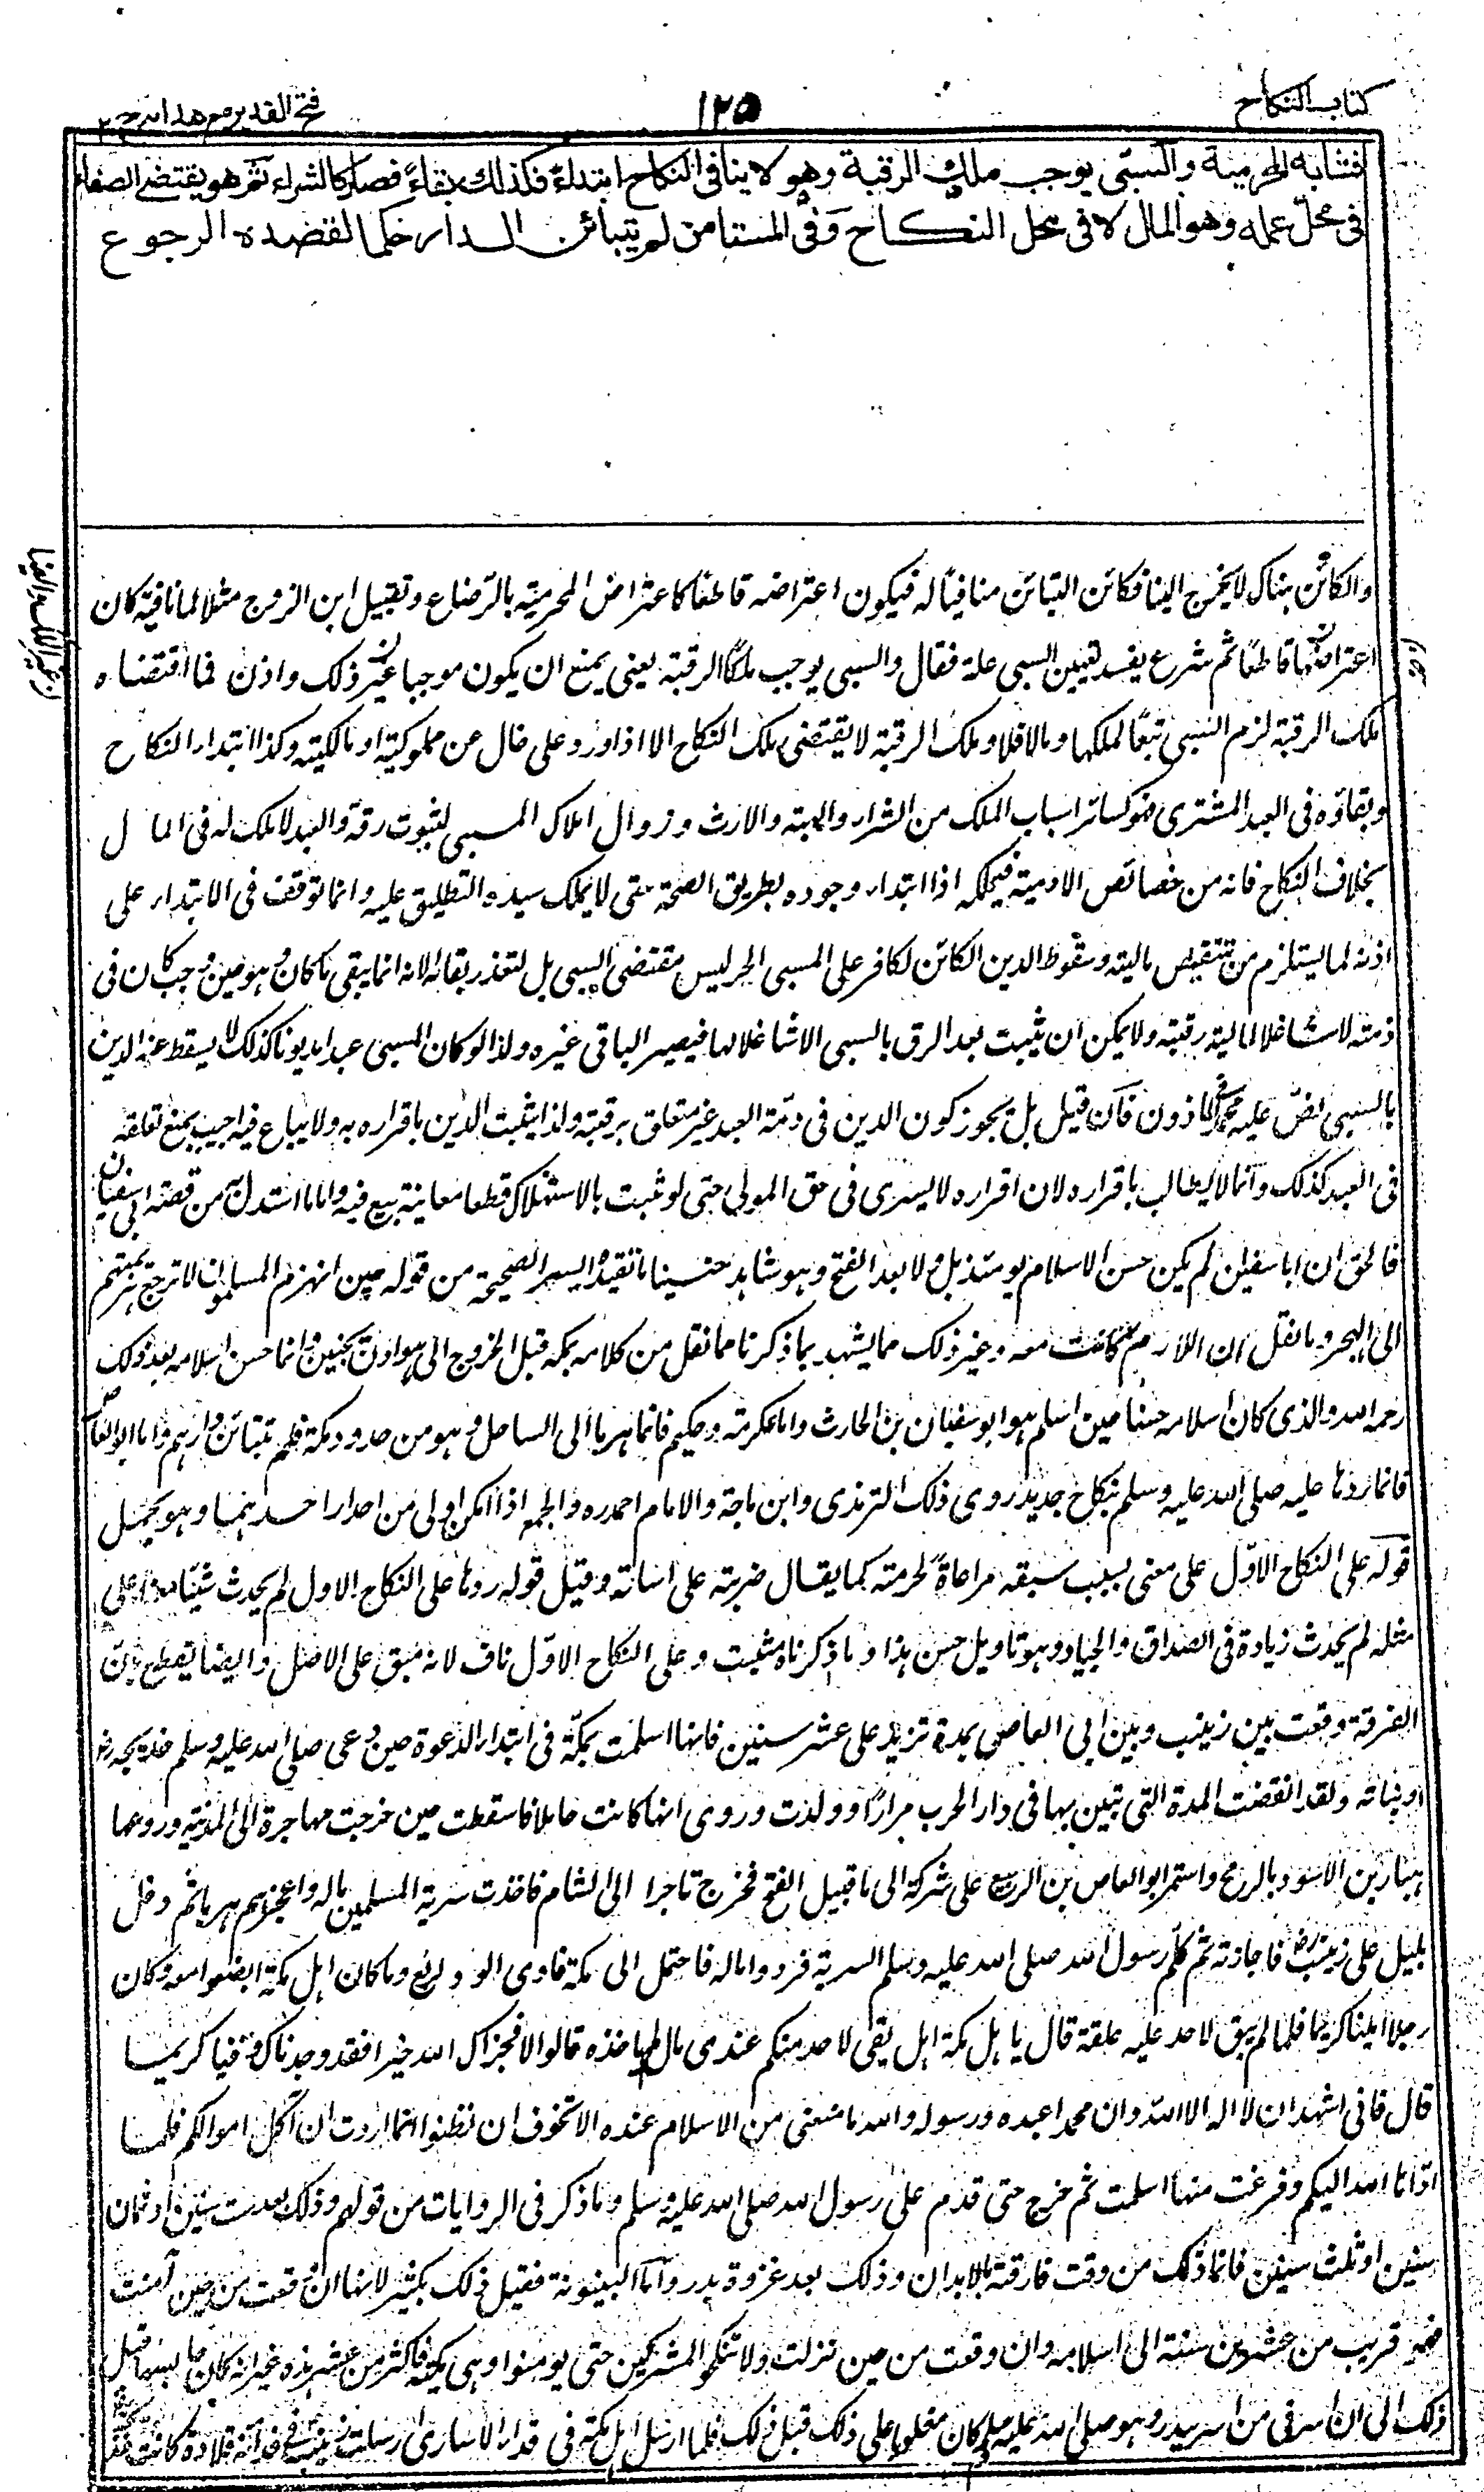 كتاب النكاح
١٢٥
فتح القدير مع هدايه ج ٢
فشابه المحرمية والسبي يوجب ملك الرقبة وهو لا ينافي النكاح ابتداءً فكذلك بقاءً فصار كالشراء ثم هو يقتضي الصفاء
في محل عمله وهو المال لا في محل النكاح وفي المستامن لم تتبائن الدار حكما لقصده الرجوع
والكائن هناك لا يخرج الينا فكان التبائن منافيًا له فيكون اعتراضه قاطعًا كاعتراض المحرمية بالرضاع وتقبيل ابن الزوج مثلا لما نافيته كان
اعتراضها قاطعًا ثم شرع يفسد تعيين السبي علة فقال والسبي يوجب ملك الرقبة يعني يمنع ان يكون موجبا غير ذلك واذن فما اقتضاه
ملك الرقبة لزم السبي تبعًا لملكها ومالا فلا وملك الرقبة لا يقتضي ملك النكاح الا اذا ورد على خال عن مملوكيته او مالكيته وكذا ابتداء النكاح
وبقاؤه في العبد المشترى فهو كسائر اسباب الملك من الشراء والهبة والارث وزوال املاك المسبي لثبوت رقه والعبد لا ملك له في المال
بخلاف النكاح فانه من خصائص الادمية فيملكه اذا ابتداء وجوده بطريق الصحة حتى لا يملك سيده التطليق عليه وانما توقف في الابتداء على
اذنه لما يستلزم من تنقيص ماليته وسقوط الدين الكائن لكافر على المسبي الحر ليس مقتضى السبي بل لتعذر بقائه لانه انما يبقى ما كان وهو حين وجب كان في
ذمته لا شاغلا لمالية رقبته ولا يمكن ان يثبت بعد الرق بالسبي الا شاغلا لها فيصير الباقي غيره ولذا لو كان المسبي عبدا مديونا كذلك لا يسقط عنه الدين
بالسبي نص عليه محمد في الماذون فان قيل بل يجوز كون الدين في ذمة العبد غير متعلق برقبته ولذا يثبت الدين باقراره به ولا يباع فيه اجيب بمنع تعلقه
في العبد كذلك وانما لا يطالب باقراره لان اقراره لا يسري في حق المولى حتى لو ثبت بالاستهلاك قطعا معاينة بيع فيه واما ما استدل به من قصة ابي سفيان
فالحق ان ابا سفيان لم يكن حسن الاسلام يومئذ بل ولا بعد الفتح وهو شاهد حنينا ما تفيده السير الصحيحة من قوله حين انهزم المسلمون لا ترجع هزيمتهم
الى البحر وما نقل ان الازلام كانت معه وغير ذلك مما يشهد بما ذكرنا مما نقل من كلامه بمكة قبل الخروج الى هوازن بحنين وانما حسن اسلامه بعد ذلك
رحمه الله والذي كان اسلامه حسنا حين اسلم هو ابو سفيان بن الحارث واما عكرمة وحكيم فانما هربا الى الساحل وهو من حدود مكة فلم تتبائن دارهم واما ابو العاص
فانما ردها عليه صلى الله عليه وسلم بنكاح جديد روى ذلك الترمذي وابن ماجة والامام احمد ره والجمع اذا امكن اولى من اهدار احدهما وهو بحمل
قوله على النكاح الاول على معنى بسبب سبقه مراعاة لحرمته كما يقال ضربته على اساءته وقيل قوله ردها على النكاح الاول لم يحدث شيئا معناه على
مثله لم يحدث زيادة في الصداق والحباء وهو تاويل حسن هذا وما ذكرناه مثبت وعلى النكاح الاول ناف لانه مبق على الاصل وايضا يقطع بان
الفرقة وقعت بين زينب وبين ابي العاص بمدة تزيد على عشر سنين فانها اسلمت بمكة في ابتداء الدعوة حين دعى صلى الله عليه وسلم خديجة رض
وبناته ولقد انقضت المدة التي تبين بها في دار الحرب مرارًا وولدت وروي انها كانت حاملا فاسقطت حين خرجت مهاجرة الى المدينة وروعها
هبار بن الاسود بالرمح واستمر ابو العاص بن الربيع على شركه الى ما قبيل الفتح فخرج تاجرا الى الشام فاخذت سرية المسلمين ماله واعجزهم هربا ثم دخل
بليل على زينب رض فاجارته ثم كلم رسول الله صلى الله عليه وسلم السرية فردوا ماله فاحتمل الى مكة فادى الودائع وما كان اهل مكة ابضعوا معه وكان
رجلا امينا كريما فلما لم يبق لاحد عليه علقة قال يا اهل مكة اهل بقي لاحد منكم عندي مال لم ياخذه قالوا لا فجزاك الله خيرا فقد وجدناك وفيا كريما
قال فاني اشهد ان لا اله الا الله وان محمدا عبده ورسوله والله ما منعني من الاسلام عنده الا تخوف ان تظنوا انما اردت ان آكل اموالكم فلما
اداها الله اليكم وفرغت منها اسلمت ثم خرج حتى قدم على رسول الله صلى الله عليه وسلم وما ذكر في الروايات من قولهم وذلك بعد ست سنين او ثمان
سنين او ثلث سنين فانما ذلك من وقت فارقته بالابدان وذلك بعد غزوة بدر واما البينونة فقيل ذلك بكثير لانها ان وقعت من حين آمنت
فهو قريب من عشرين سنة الى اسلامه وان وقعت من حين نزلت ولا تنكحوا المشركين حتى يومنوا وهي مكية فاكثر من عشر هذه غير انه كان حابسها قبل
ذلك الى ان اسر في من اسر ببدر وهو صلى الله عليه وسلم كان مغلوبا على ذلك قبل ذلك فلما ارسل اهل مكة في فداء الاسارى ارسلت زينب في فدائه قلادة كانت